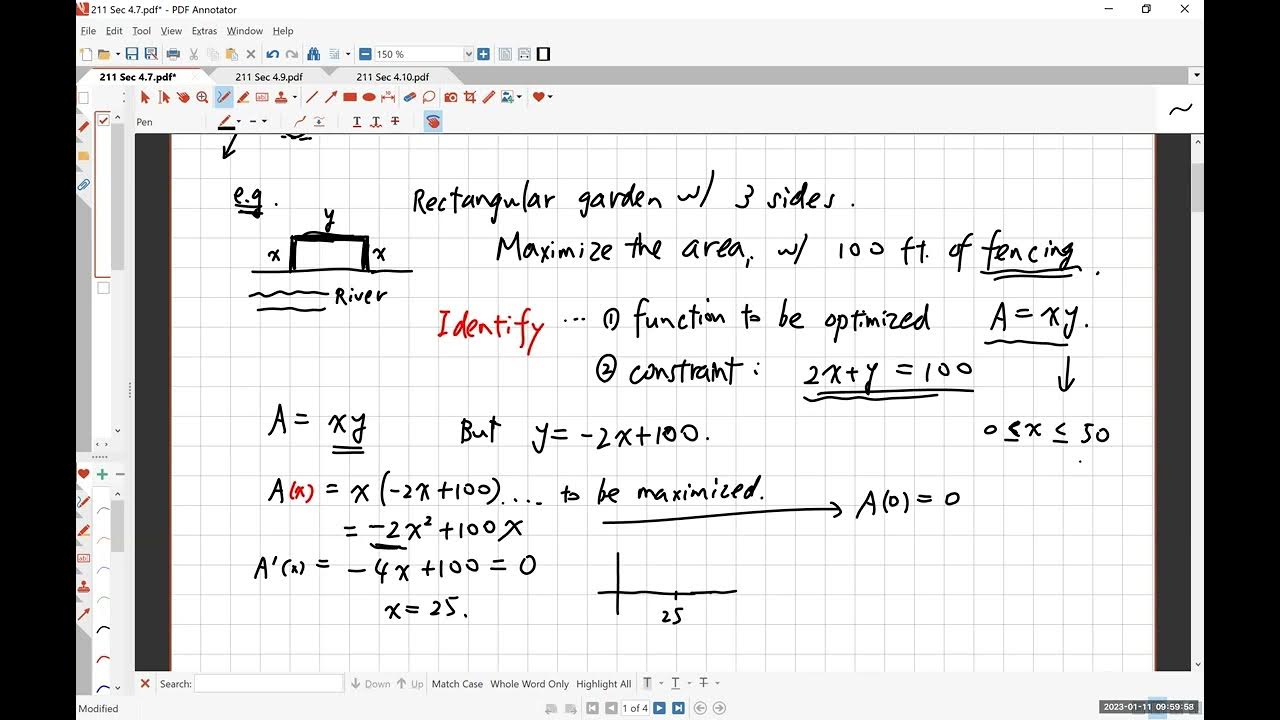 211 Sec 4.7.pdf* - PDF Annotator
File Edit Tool View Extras Window Help
150 %
211 Sec 4.7.pdf* 211 Sec 4.9.pdf 211 Sec 4.10.pdf
Pen
e.g. Rectangular garden w/ 3 sides.
y
x x
Maximize the area, w/ 100 ft. of fencing.
River
Identify ... ① function to be optimized A = xy.
② constraint: 2x+y = 100
A = xy But y = -2x+100. 0 ≤ x ≤ 50
A(x) = x(-2x+100) .... to be maximized. A(0) = 0
= -2x²+100x
A'(x) = -4x+100 = 0
x = 25. 25
Search: Down Up Match Case Whole Word Only Highlight All T T T
Modified 1 of 4 2023-01-11 09:59:58